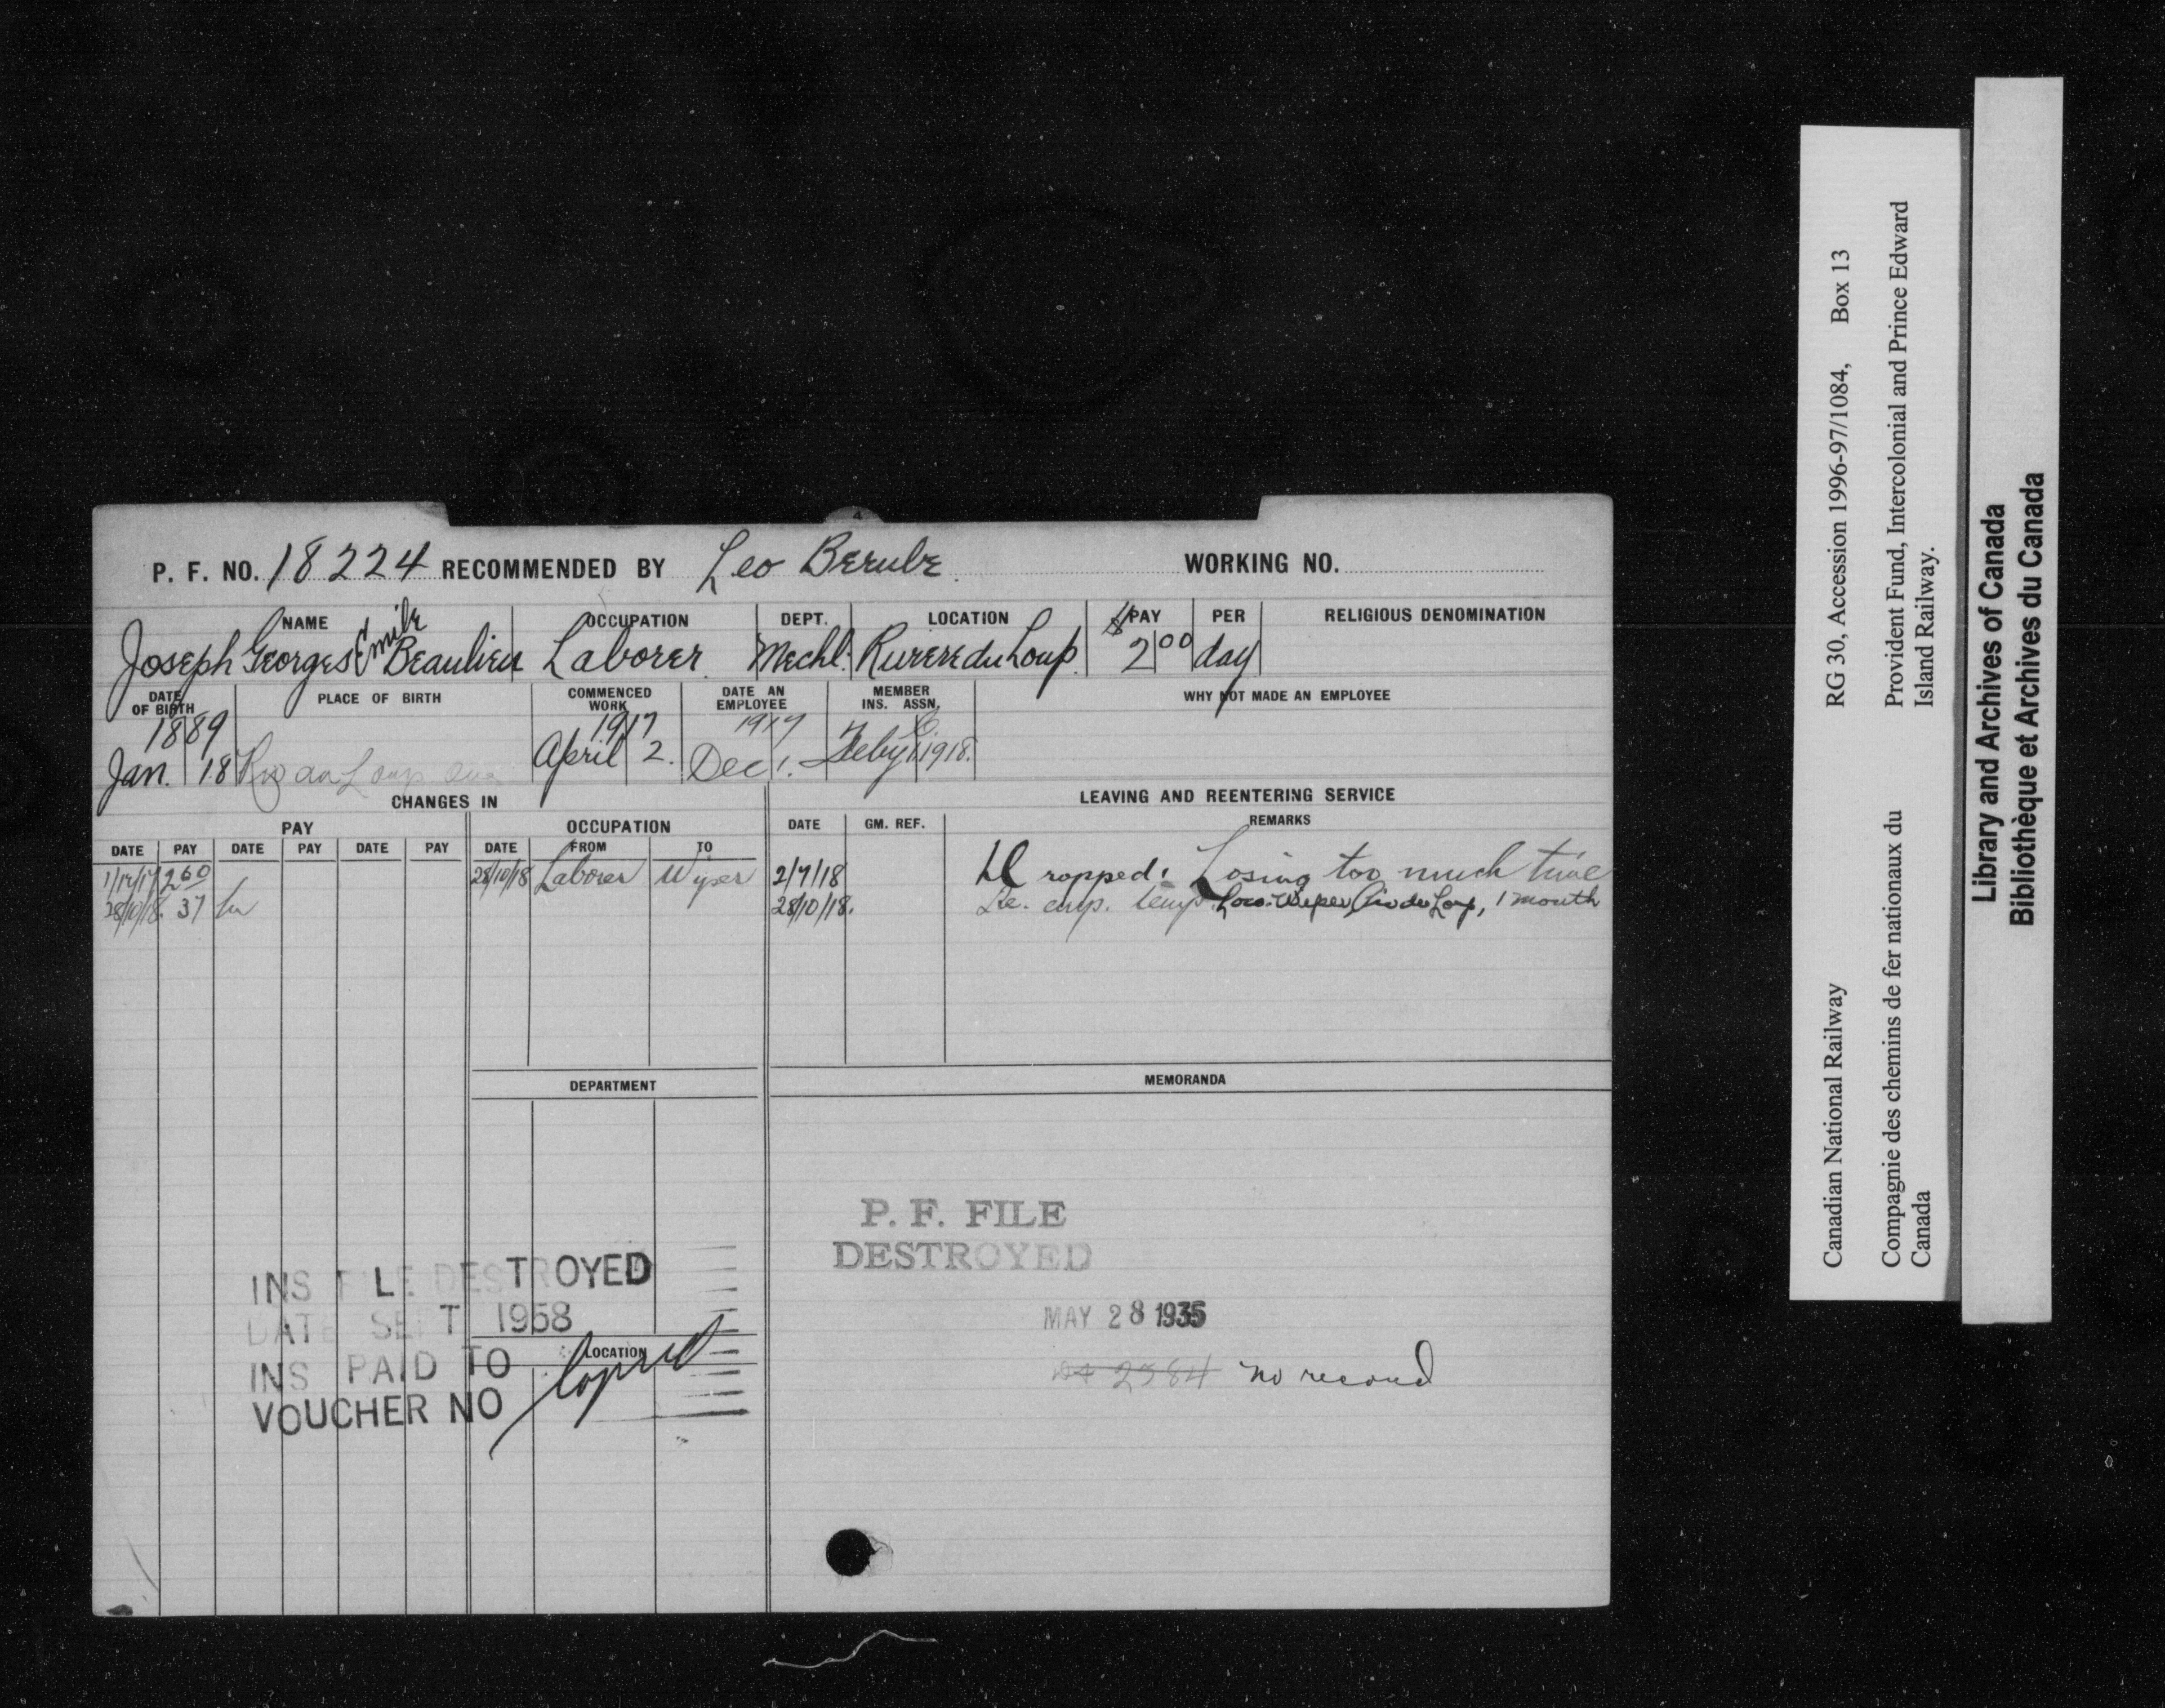 P. F. NO. 18224 RECOMMENDED BY Leo Berube WORKING NO.
NAME OCCUPATION DEPT. LOCATION $ PAY PER RELIGIOUS DENOMINATION
Joseph Georges Emile Beaulieu Laborer Mechl. Riviere du Loup 2 00 day
DATE OF BIRTH PLACE OF BIRTH COMMENCED WORK DATE AN EMPLOYEE MEMBER INS. ASSN. WHY NOT MADE AN EMPLOYEE
1889 1917 1917 C.
Jan. 18 Riv du Loup Que April 2. Dec 1. Feby 1 1918.
CHANGES IN LEAVING AND REENTERING SERVICE
PAY OCCUPATION DATE GM. REF. REMARKS
DATE PAY DATE PAY DATE PAY DATE FROM TO
1/12/17 2 60 28/10/18 Laborer Wiper 2/7/18 Dropped. Losing too much time
28/10/18 37 hr 28/10/18. Re. emp. temp. Loco. Wiper Riv du Loup, 1 month
DEPARTMENT MEMORANDA
P. F. FILE
DESTROYED
INS FILE DESTROYED
DATE SEPT 1958
MAY 28 1935
LOCATION
INS PAID TO
2584 no record
VOUCHER NO
Canadian National Railway RG 30, Accession 1996-97/1084, Box 13
Compagnie des chemins de fer nationaux du Canada
Provident Fund, Intercolonial and Prince Edward Island Railway.
Library and Archives of Canada
Bibliothèque et Archives du Canada